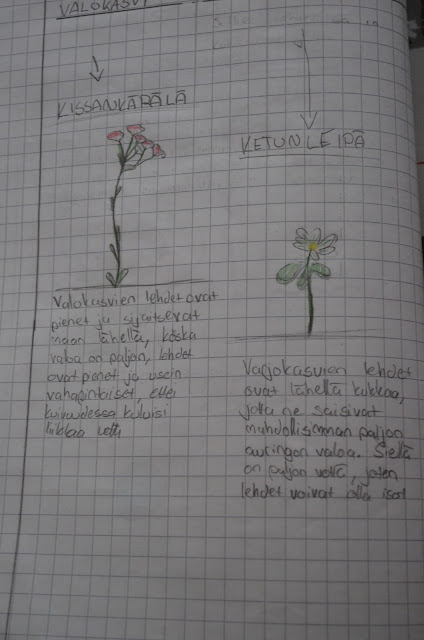 VALOKASVI
KISSANKÄPÄLÄ
Valokasvien lehdet ovat
pienet ja sijaitsevat
maan lähellä, koska
valoa on paljon, lehdet
ovat pienet ja usein
vahapintaiset, ettei
kuivuudessa kuluisi
liikaa
KETUNLEIPÄ
Varjokasvien lehdet
ovat lähellä kukkaa,
jotta ne saisivat
mahdollisimman paljon
auringon valoa. Siellä
on paljon vettä, joten
lehdet voivat olla isot